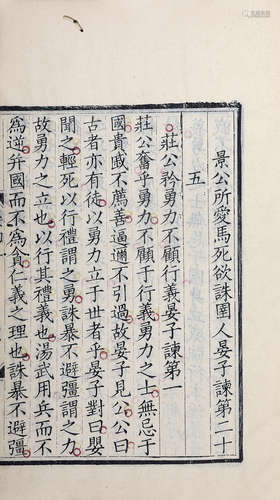 景公所愛馬死欲誅圉人晏子諫第二十
五
莊公矜勇力不顧行義晏子諫第一
莊公奮乎勇力不顧于行義勇力之士無忌于
國貴戚不薦善逼邇不引過故晏子見公公曰
古者亦有徒以勇力立于世者乎晏子對曰嬰
聞之輕死以行禮謂之勇誅暴不避彊謂之力
故勇力之立也以行其禮義也湯武用兵而不
爲逆并國而不爲貪仁義之理也誅暴不避彊